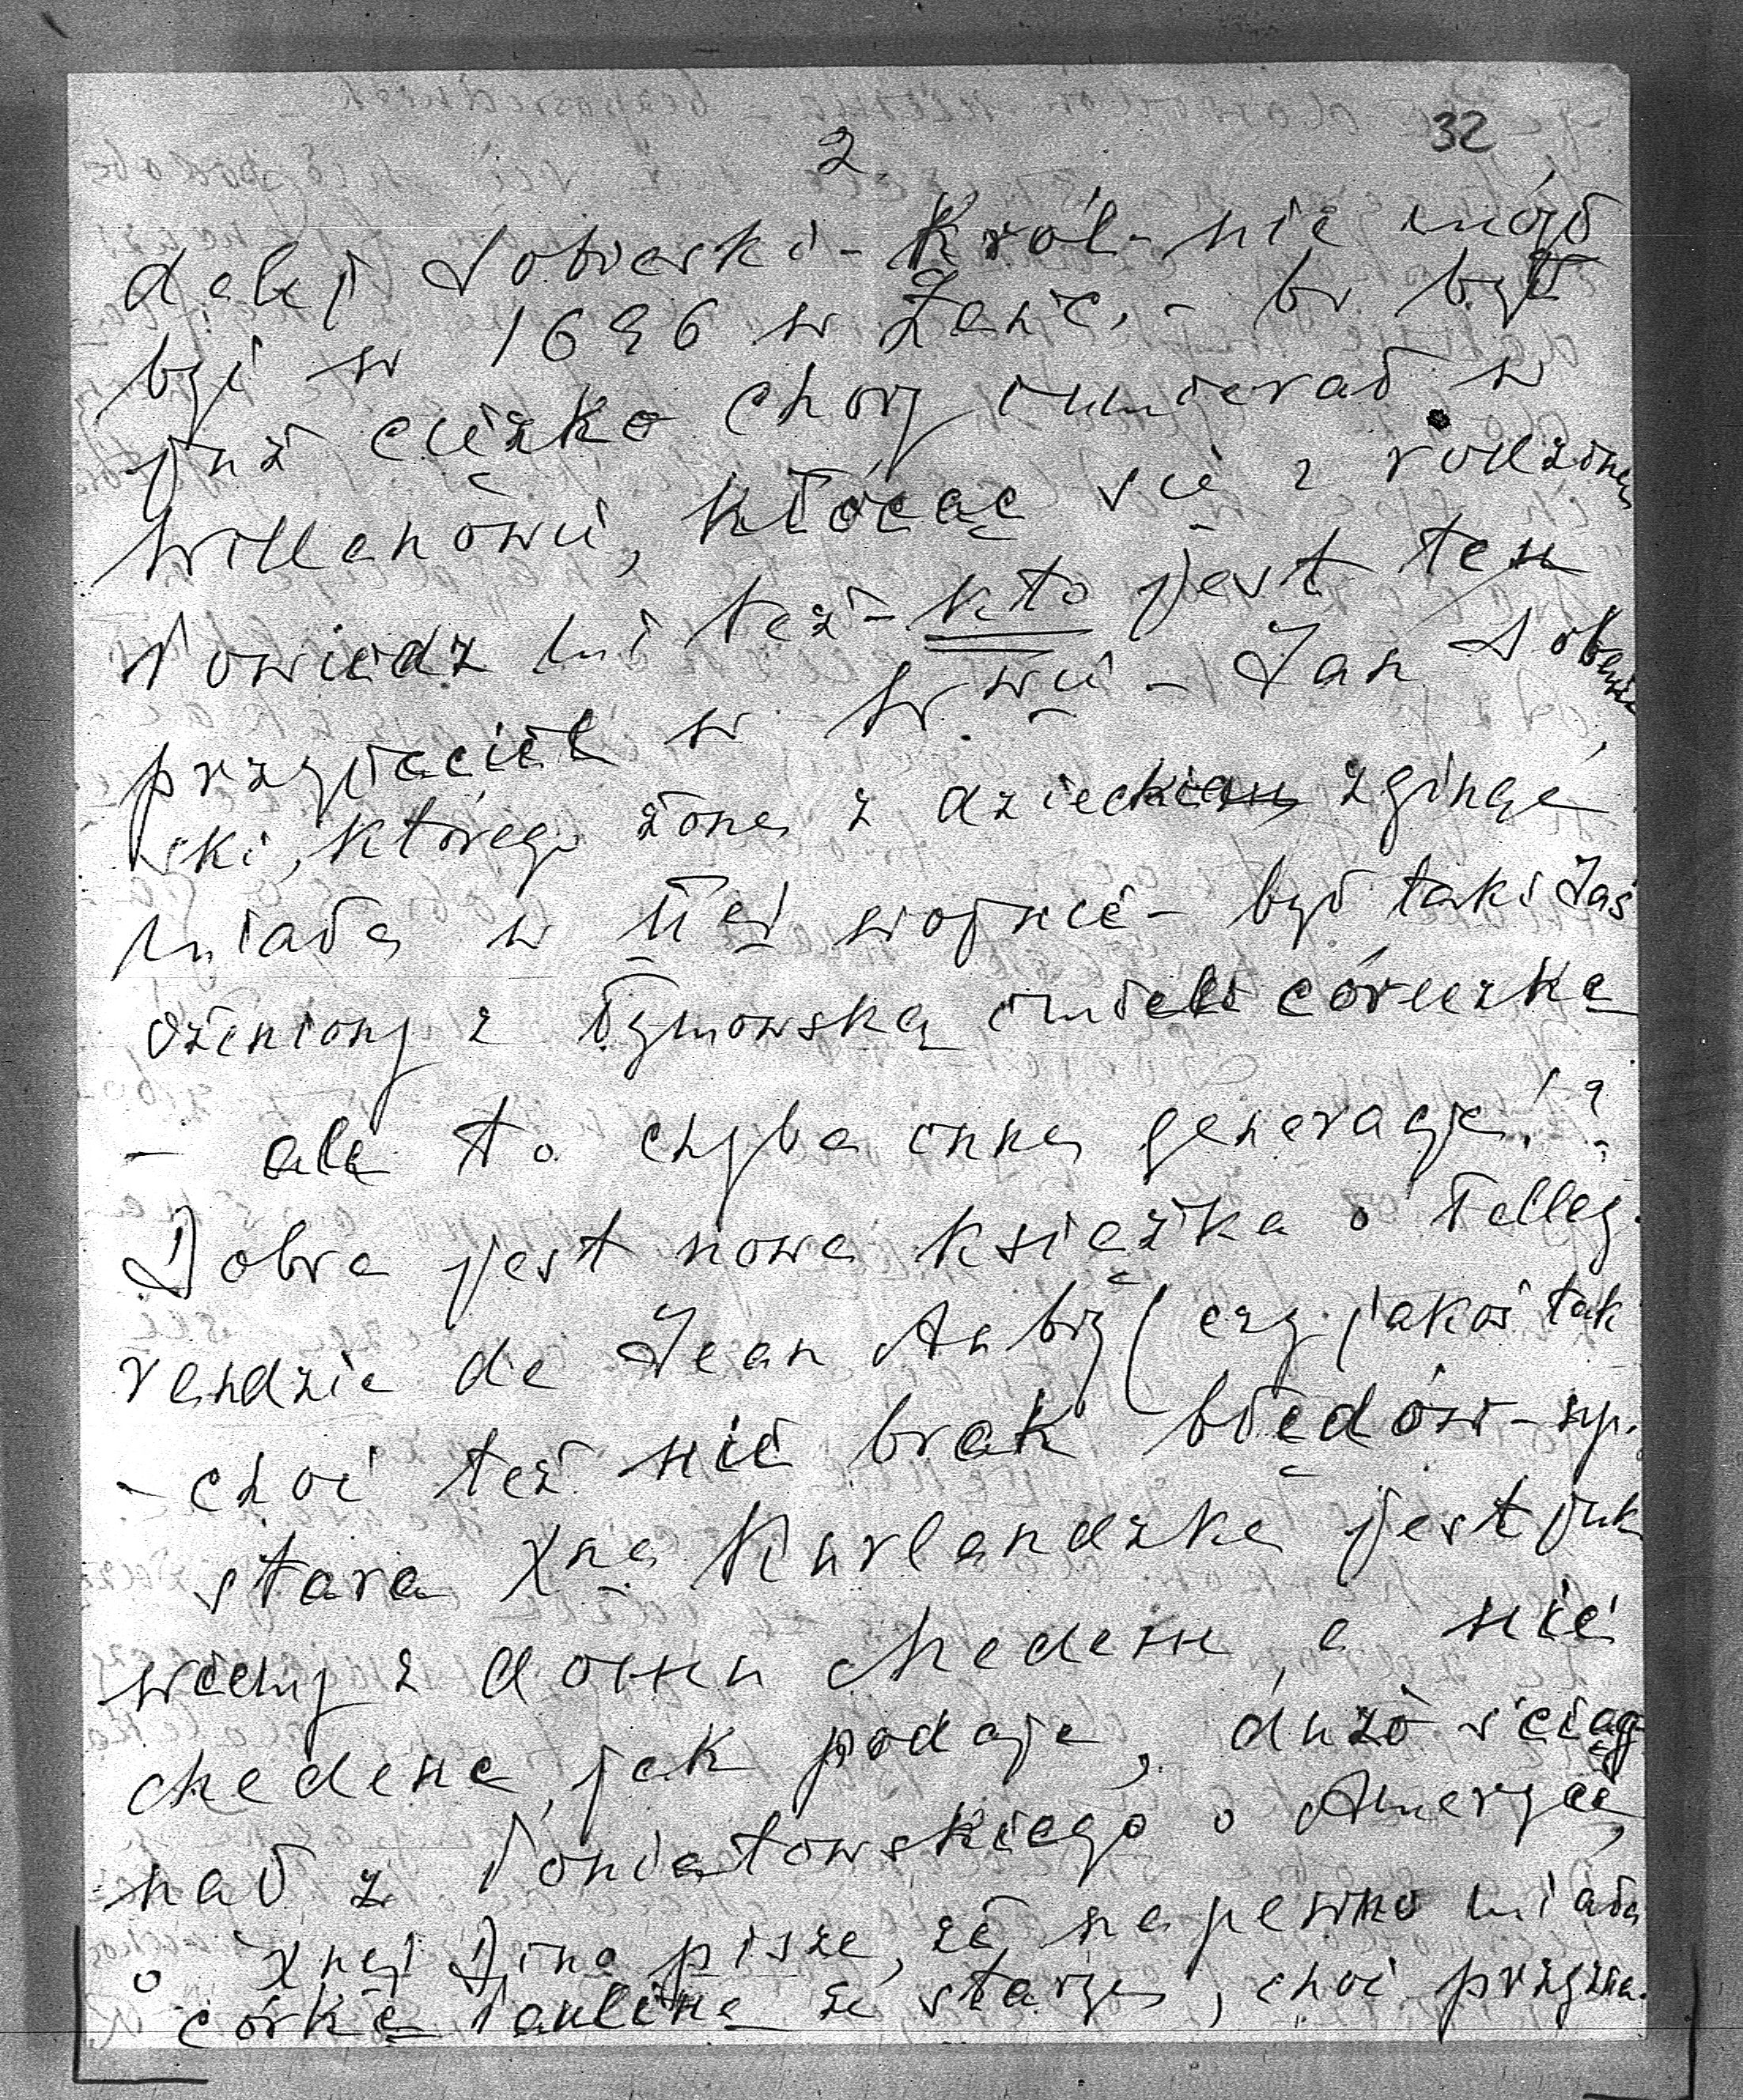 2
32
dalej Sobieski - Król - nie mógł
być w 1696 w Żanie, - bo był
już ciężko chory i umierał w
Willanowie, kłócąc się z rodziną
Powiedz mi też - kto jest ten
przyjaciel w W-wie - Jan Sobań-
ski, którego żona z dzieckiem zginąć
miała w IIej wojnie - był taki Jaś
ożeniony z Tymowską i mieli córeczkę
- ale to chyba inna generacja!?
Dobra jest nowa książka o Talley-
randzie de Jean (czy jakoś tak
- choć też nie brak błędów - np.
stara Xna Kurlandzka jest jak
wiemy z domu Medem, a nie
Medena, jak podaje, dużo ściąg-
nął z Poniatowskiego o Ameryce,
o Xnej Dino pisze, że na pewno miała
córkę Paulinę ze starym, choć przyzna-